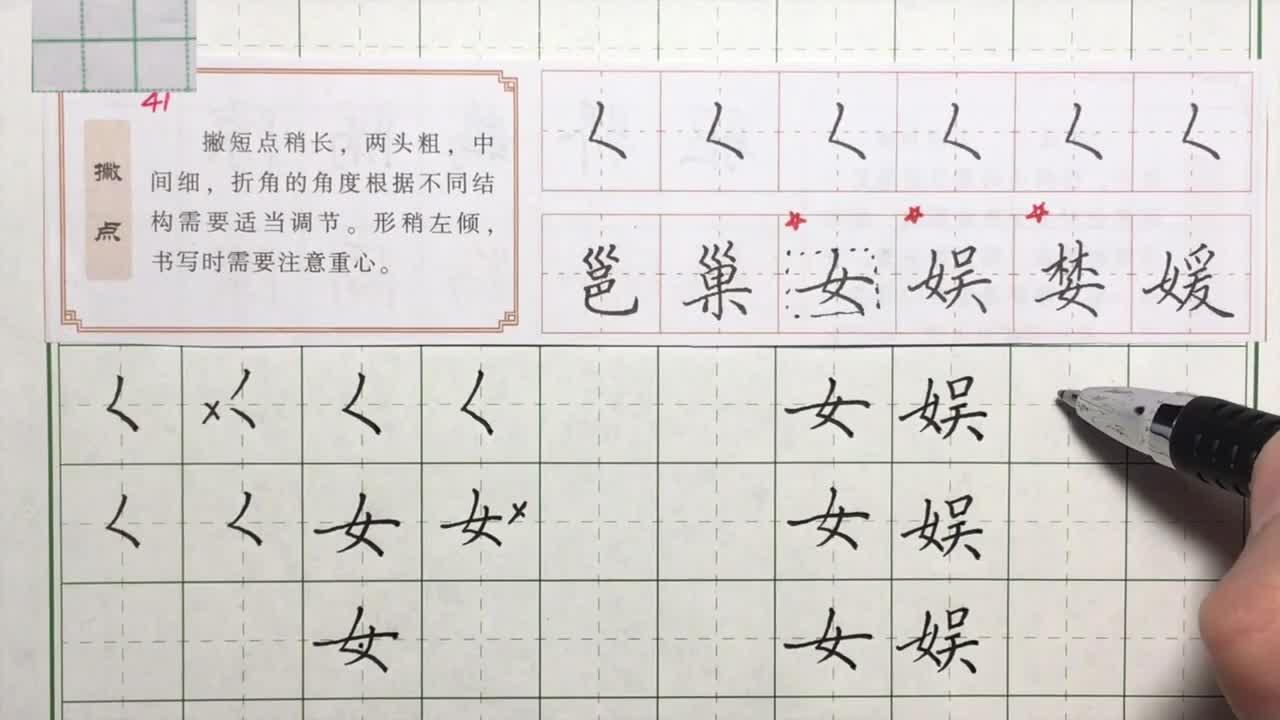 41
撇点
撇短点稍长，两头粗，中
间细，折角的角度根据不同结
构需要适当调节。形稍左倾，
书写时需要注意重心。
く く く く く く
邕 巢 女 娱 婪 媛
く ×く く く 女 娱
く く 女 女× 女 娱
女 女 娱